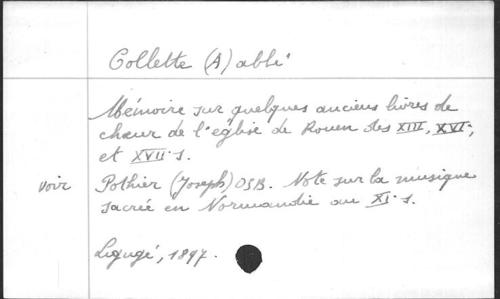 Collette (A) abbé
Mémoire sur quelques anciens livres de
chœur de l'église de Rouen des XIII, XVI,
et XVII s.
voir Pothier (Joseph) OSB. Note sur la musique
sacrée en Normandie au XI s.
Ligugé, 1897.